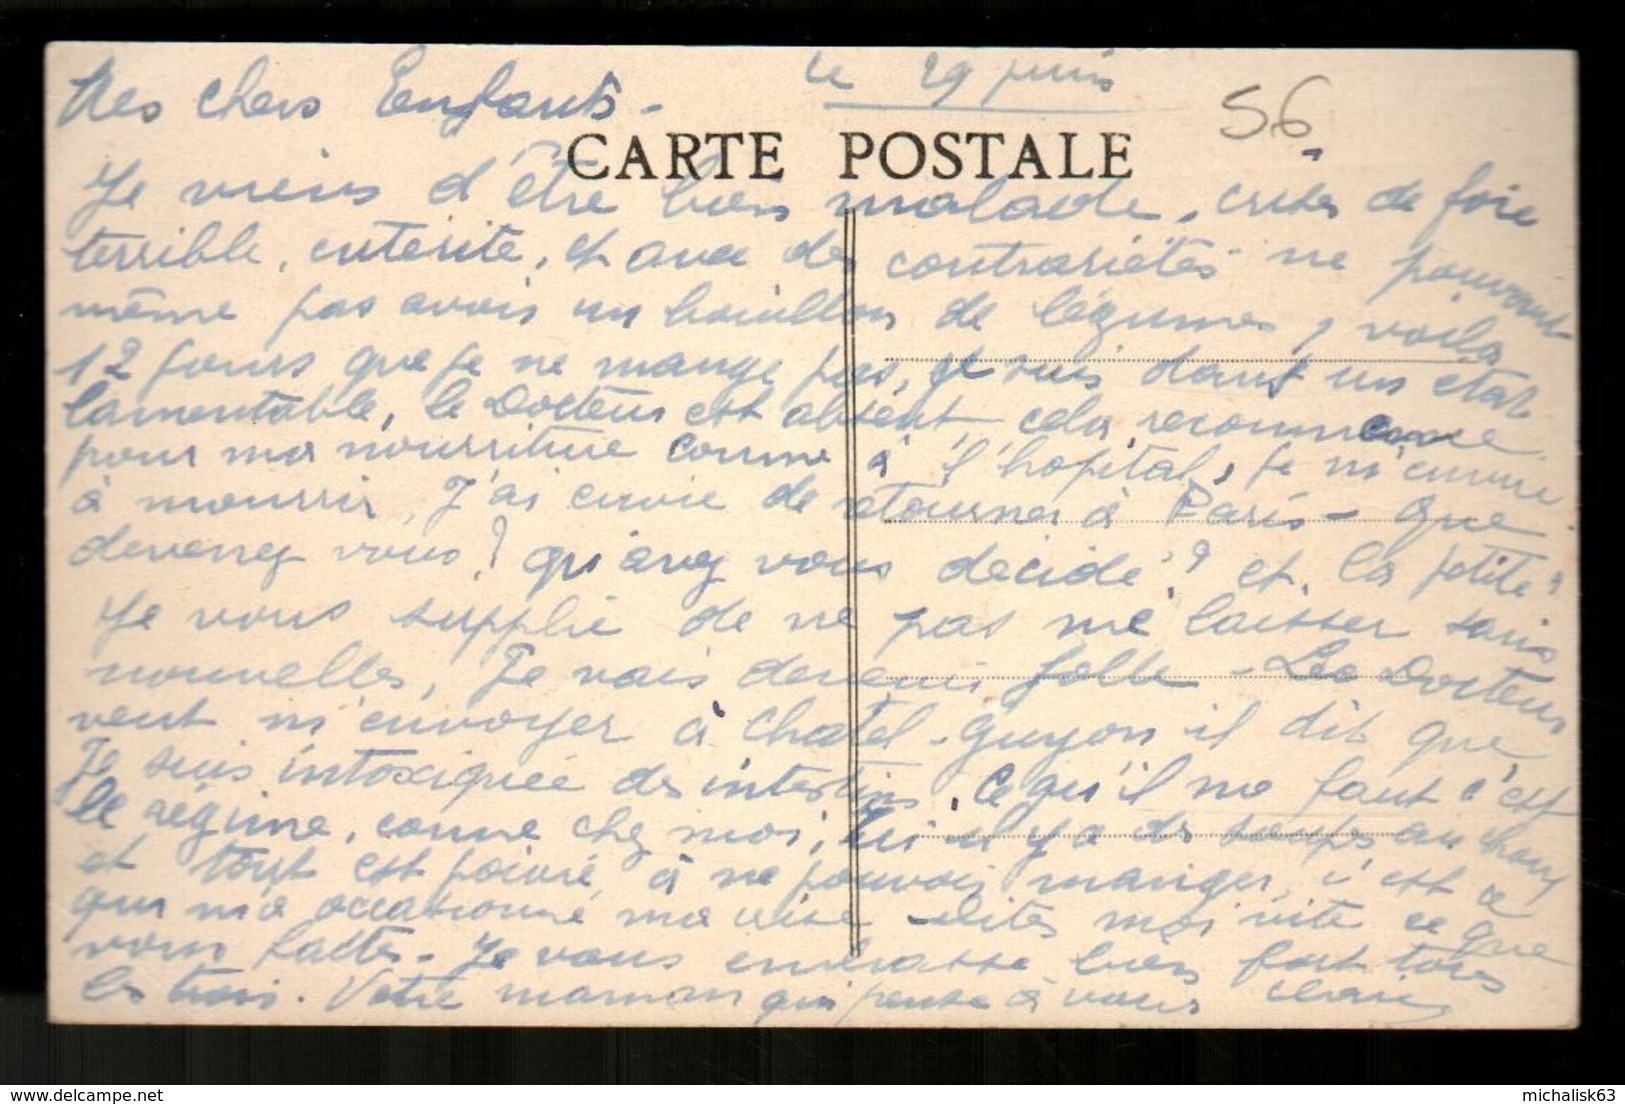 le 29 juin
56
Mes chers Enfants -
CARTE POSTALE
Je viens d'être bien malade, crises de foie
terrible, entérite, et avec des contrariétés ne pouvant
même pas avoir un bouillon de légumes, voila
12 jours que je ne mange pas, je suis dans un etat
lamentable, le Docteur est absent cela recommence
pour ma nourriture comme à l'hopital, je m'ennuie
à mourrir, J'ai envie de retourner à Paris - Que
devenez vous ? qu'avez vous décidé ? et la petite ?
Je vous supplie de ne pas me laisser sans
nouvelles, Je vais devenir folle - Le Docteur
veut m'envoyer à Chatel-Guyon il dit que
Je suis intoxiquée des intestins, Ce qu'il me faut c'est
le régime, comme chez moi, ici il y a des soupes au choux
et tout est poivré, à ne pouvoir manger, c'est ce
qui m'a occasionné ma crise - dites moi vite ce que
vous faites - Je vous embrasse bien fort tous
les trois. Votre maman qui pense à vous
michalisk63